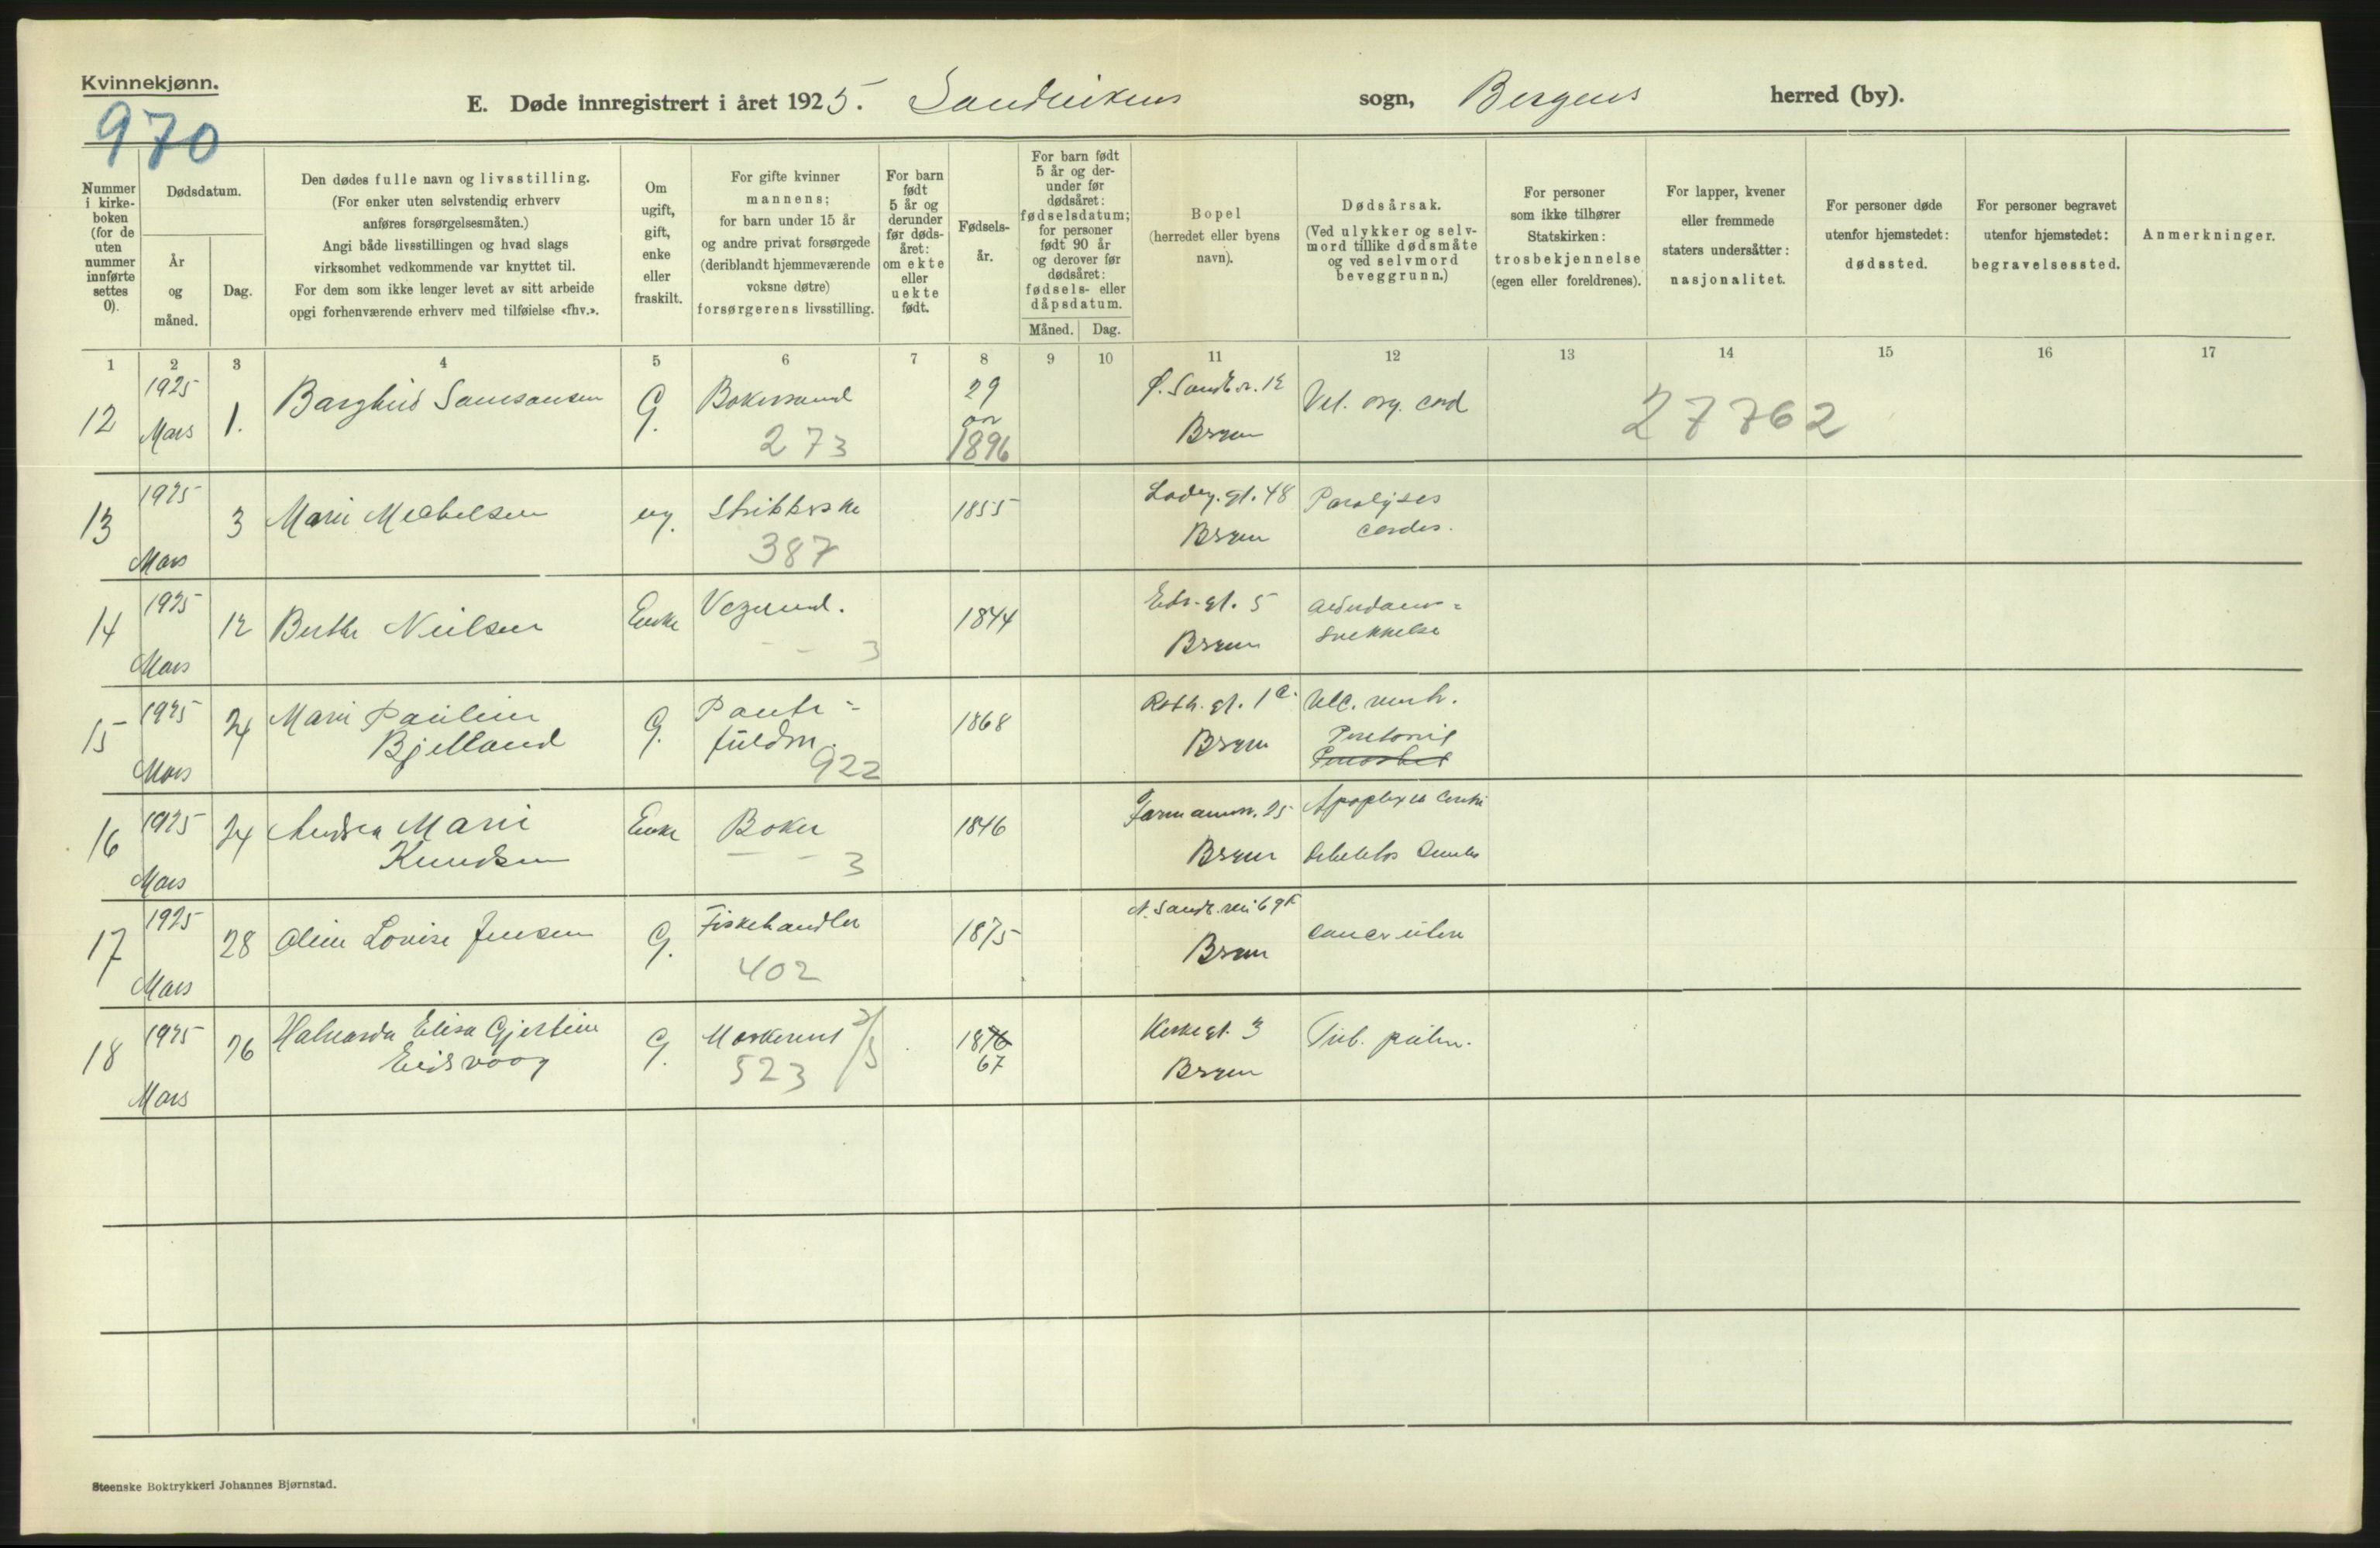 Kvinnekjønn.
970
E. Døde innregistrert i året 1925. Sandvikens sogn, Bergens herred (by).
Nummer i kirkeboken (for de uten nummer innførte settes 0).
Dødsdatum.
År og måned.
Dag.
Den dødes fulle navn og livsstilling.
(For enker uten selvstendig erhverv
anføres forsørgelsesmåten.)
Angi både livsstillingen og hvad slags
virksomhet vedkommende var knyttet til.
For dem som ikke lenger levet av sitt arbeide
opgi forhenværende erhverv med tilføielse «fhv.».
Om
ugift,
gift,
enke
eller
fraskilt.
For gifte kvinner
mannens;
for barn under 15 år
og andre privat forsørgede
(deriblandt hjemmeværende
voksne døtre)
forsørgerens livsstilling.
For barn
født
5 år og
derunder
før døds-
året:
om ekte
eller
uekte
født.
Fødsels-
år.
For barn født
5 år og der-
under før
dødsåret:
fødselsdatum;
for personer
født 90 år
og derover før
dødsåret:
fødsels- eller
dåpsdatum.
Måned. Dag.
Bopel
(herredet eller byens
navn).
Dødsårsak.
(Ved ulykker og selv-
mord tillike dødsmåte
og ved selvmord
beveggrunn.)
For personer
som ikke tilhører
Statskirken:
trosbekjennelse
(egen eller foreldrenes).
For lapper, kvener
eller fremmede
staters undersåtter:
nasjonalitet.
For personer døde
utenfor hjemstedet:
dødssted.
For personer begravet
utenfor hjemstedet:
begravelsessted.
Anmerkninger.
1 2 3 4 5 6 7 8 9 10 11 12 13 14 15 16 17
12 1925 Mars 1. Samsonsen G. 273 29 1896 Vit. org. cord 27762
13 1925 Mars 3 Marie ug. 387 1855 48 Paralyses cordis.
14 1925 Mars 12 Berthe Nielsen Enke 3 1844 5
15 1925 Mars 24 Marie Pauline Bjelland G. 922 1868 Ulc. ventr.
16 1925 Mars 24 Andrea Marie Knudsen Enke 3 1846 25
17 1925 Mars 28 Oline Lovise Jensen G. Fiskehandler 402 1875
18 1925 Mars 26 Elisa Gjertine Eidsvaag G. 523 1876 67 Kirkegt. 3 Tub. pulm.
Steenske Boktrykkeri Johannes Bjørnstad.